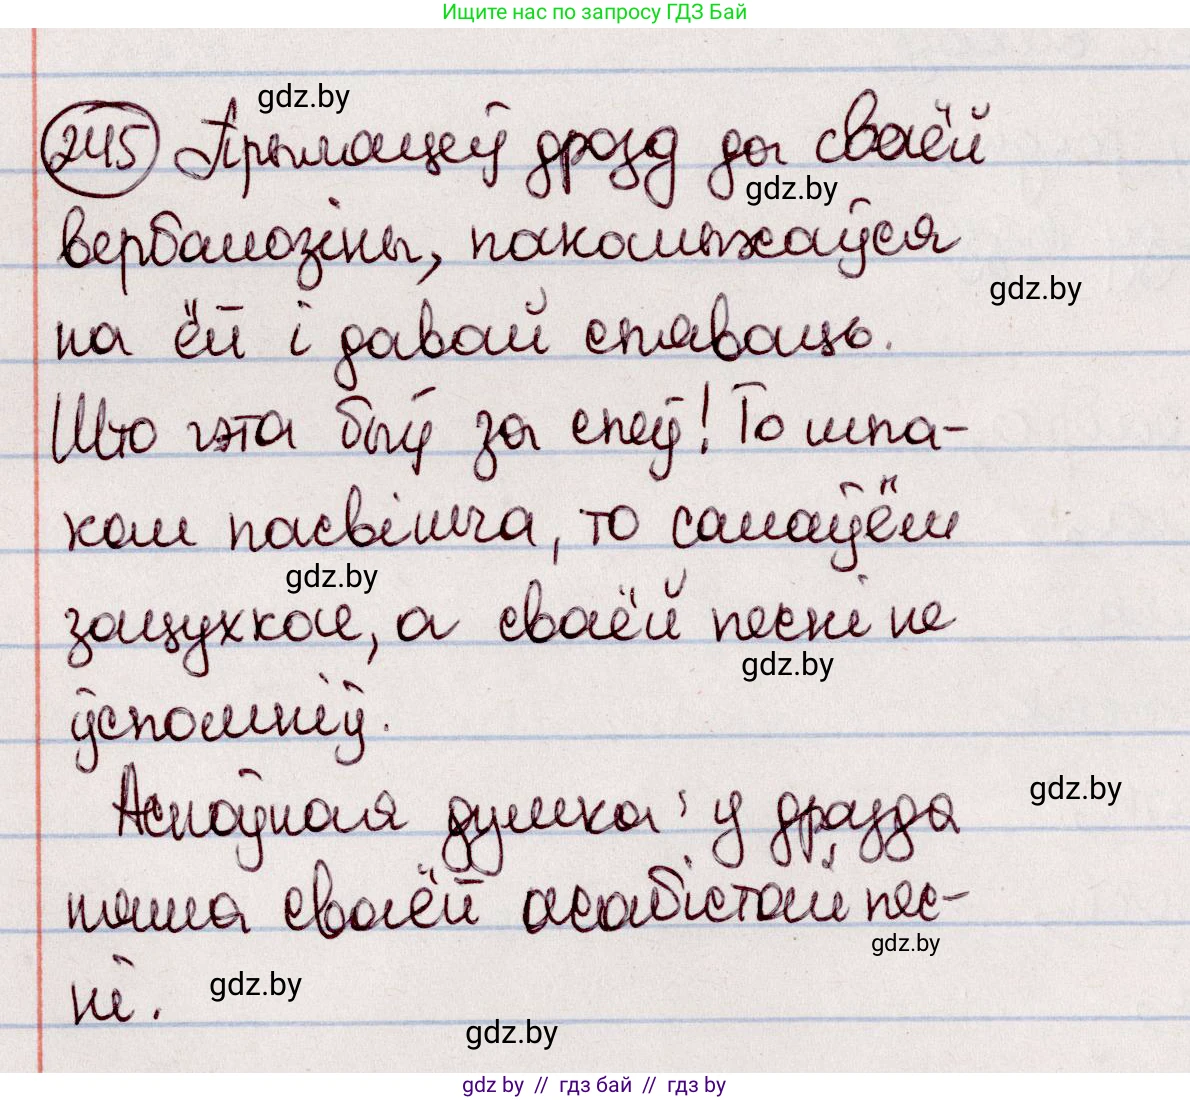 Ищите нас по запросу ГДЗ Бай
gdz.by
245 Прыляцеў дрозд да сваёй
gdz.by
вербалозіны, пакалыхаўся
gdz.by
на ёй і давай спяваць.
Што гэта быў за спеў! То шпа-
ком пасвішча, то салаўём
gdz.by
зацухкае, а сваёй песні не
gdz.by
ўспомніў.
gdz.by
Асноўная думка: у дразда
няма сваёй асабістай пес-
gdz.by
ні.
gdz.by
gdz.by
gdz by // гдз бай // гдз by